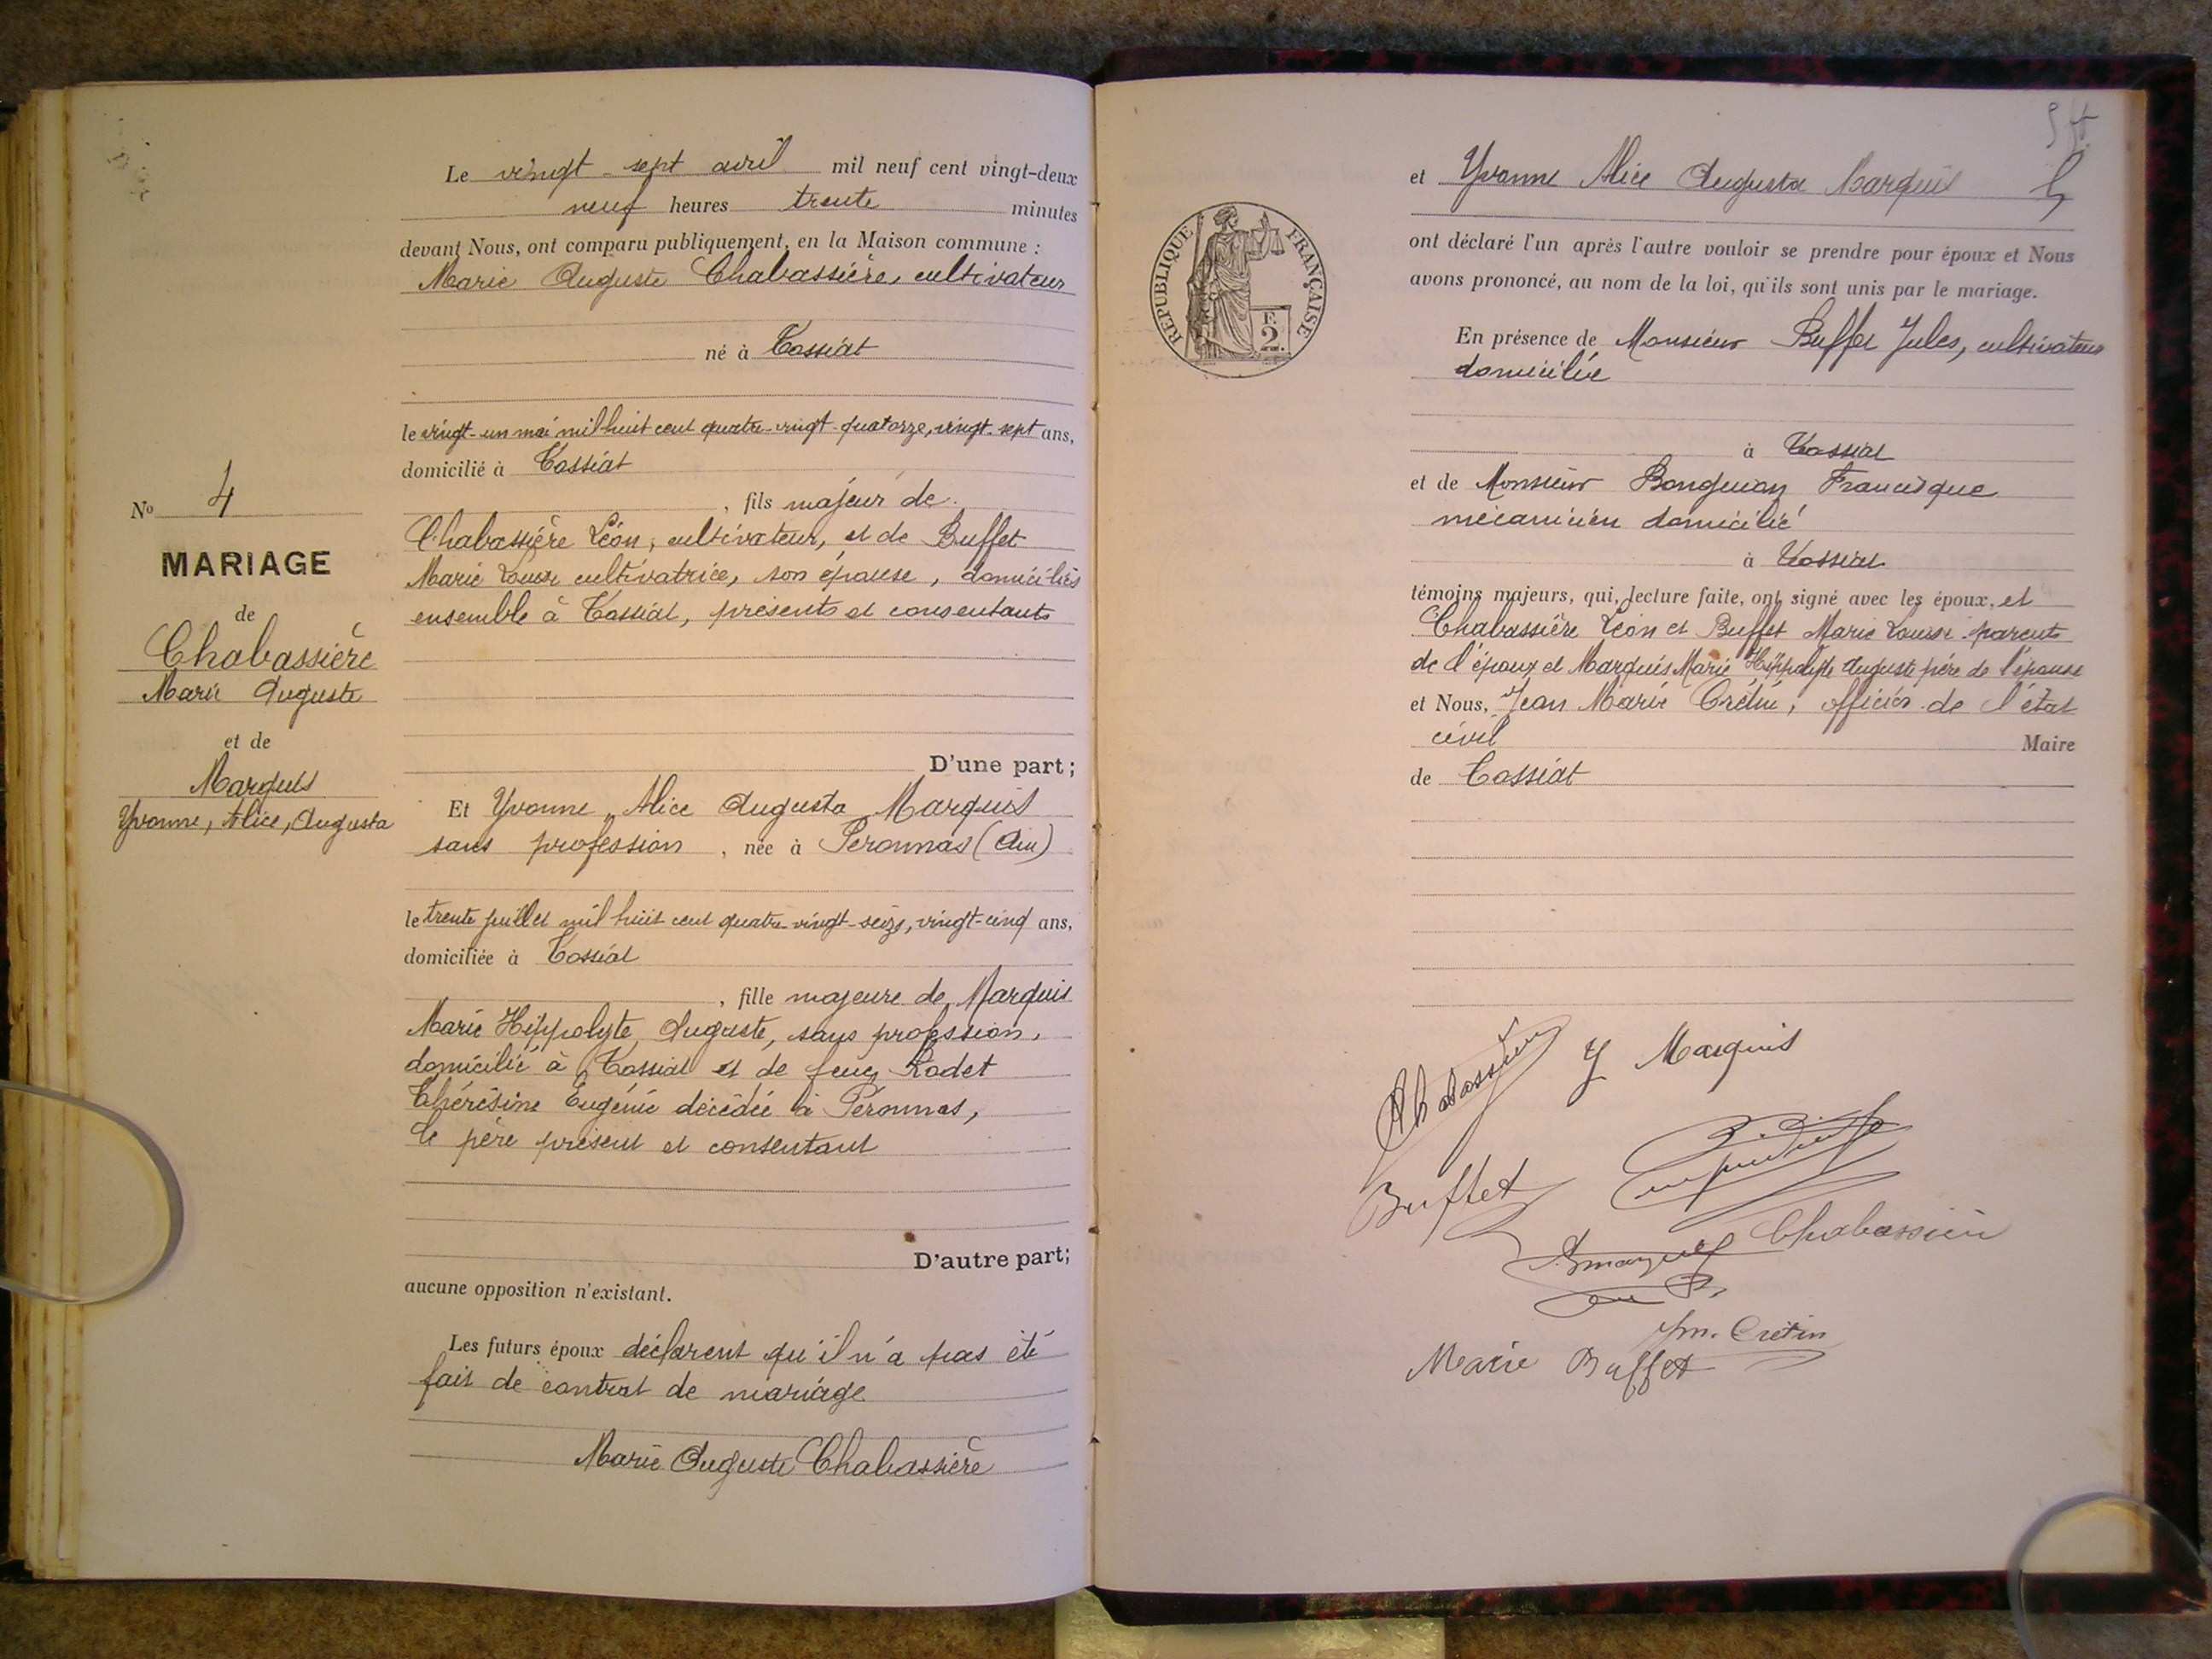 Le vingt-sept avril mil neuf cent vingt-deux
neuf heures trente minutes
devant Nous, ont comparu publiquement, en la Maison commune :
Marie Auguste Chabassière, cultivateur
né à Tossiat
le vingt-un mai mil huit cent quatre-vingt-quatorze, vingt-sept ans,
domicilié à Tossiat
, fils majeur de
Chabassière Léon, cultivateur, et de Buffet
Marie Louise cultivatrice, son épouse, domiciliés
ensemble à Tossiat, présents et consentants
D'une part ;
Et Yvonne Alice Augusta Marquis
sans profession, née à Péronnas (Ain)
le trente juillet mil huit cent quatre-vingt-seize, vingt-cinq ans,
domiciliée à Tossiat
, fille majeure de Marquis
Marie Hippolyte, Auguste, sans profession,
domicilié à Tossiat et de feue Rodet
Thérésine Eugénie décédée à Péronnas,
le père présent et consentant
D'autre part;
aucune opposition n'existant.
Les futurs époux déclarent qu'il n'a pas été
fait de contrat de mariage
Marie Auguste Chabassière
No 4
MARIAGE
de
Chabassière
Marie Auguste
et de
Marquis
Yvonne, Alice, Augusta
RÉPUBLIQUE FRANÇAISE
F.
2.
et Yvonne Alice Augusta Marquis
ont déclaré l'un après l'autre vouloir se prendre pour époux et Nous
avons prononcé, au nom de la loi, qu'ils sont unis par le mariage.
En présence de Monsieur Buffet Jules, cultivateur
domicilié
à Tossiat
et de Monsieur Francisque
mécanicien domicilié
à Tossiat
témoins majeurs, qui, lecture faite, ont signé avec les époux, et
Chabassière Léon et Buffet Marie Louise parents
de l'époux et Marquis Marie Hippolyte Auguste père de l'épouse
et Nous, Jean Marie Crétin, officier de l'état
civil Maire
de Tossiat
Chabassière
Y Marquis
Buffet
Chabassière
Jm. Cretin
Marie Buffet